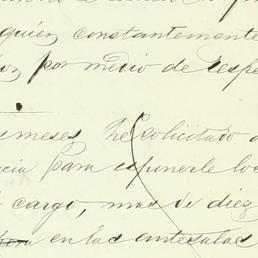 quien constantemente
por medio de respe
meses he solicitado
cia para esponerle lo
cargo, mas de diez
en las antesalas